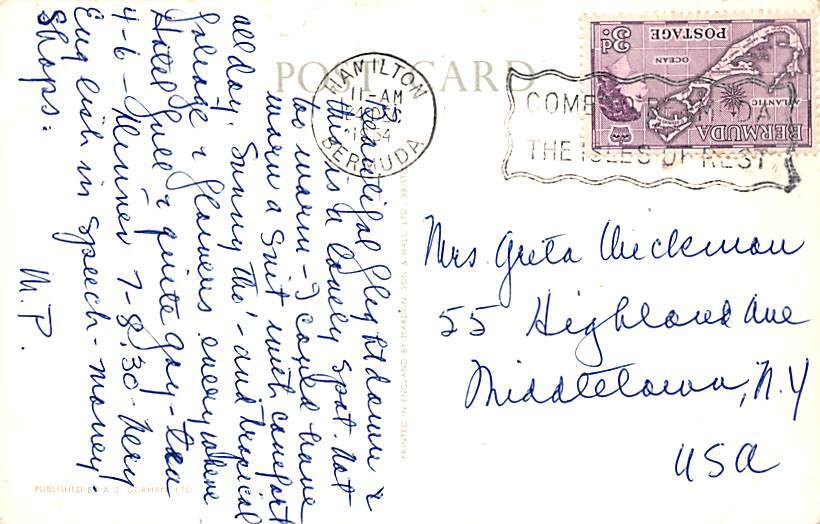 POST CARD
Beautiful flight down &
this is a lovely spot. Not
too warm - I could have
worn a suit with comfort
all day. Sunny tho' - and tropical
foliage & flowers everywhere.
Hotel full & quite gay - tea
4-6 - Dinner 7-8:30 - Very
English in speech - money
Shops.
M.P.
HAMILTON
11-AM
BERMUDA
COME TO BERMUDA
THE ISLES OF REST
BERMUDA
ATLANTIC
OCEAN
POSTAGE
3d
Mrs. Greta Wickman
55 Highland Ave
Middletown, N.Y
USA
PRINTED IN ENGLAND BY MARDON, SON & HALL, LTD.
PUBLISHED BY A. J. GORHAM, LTD